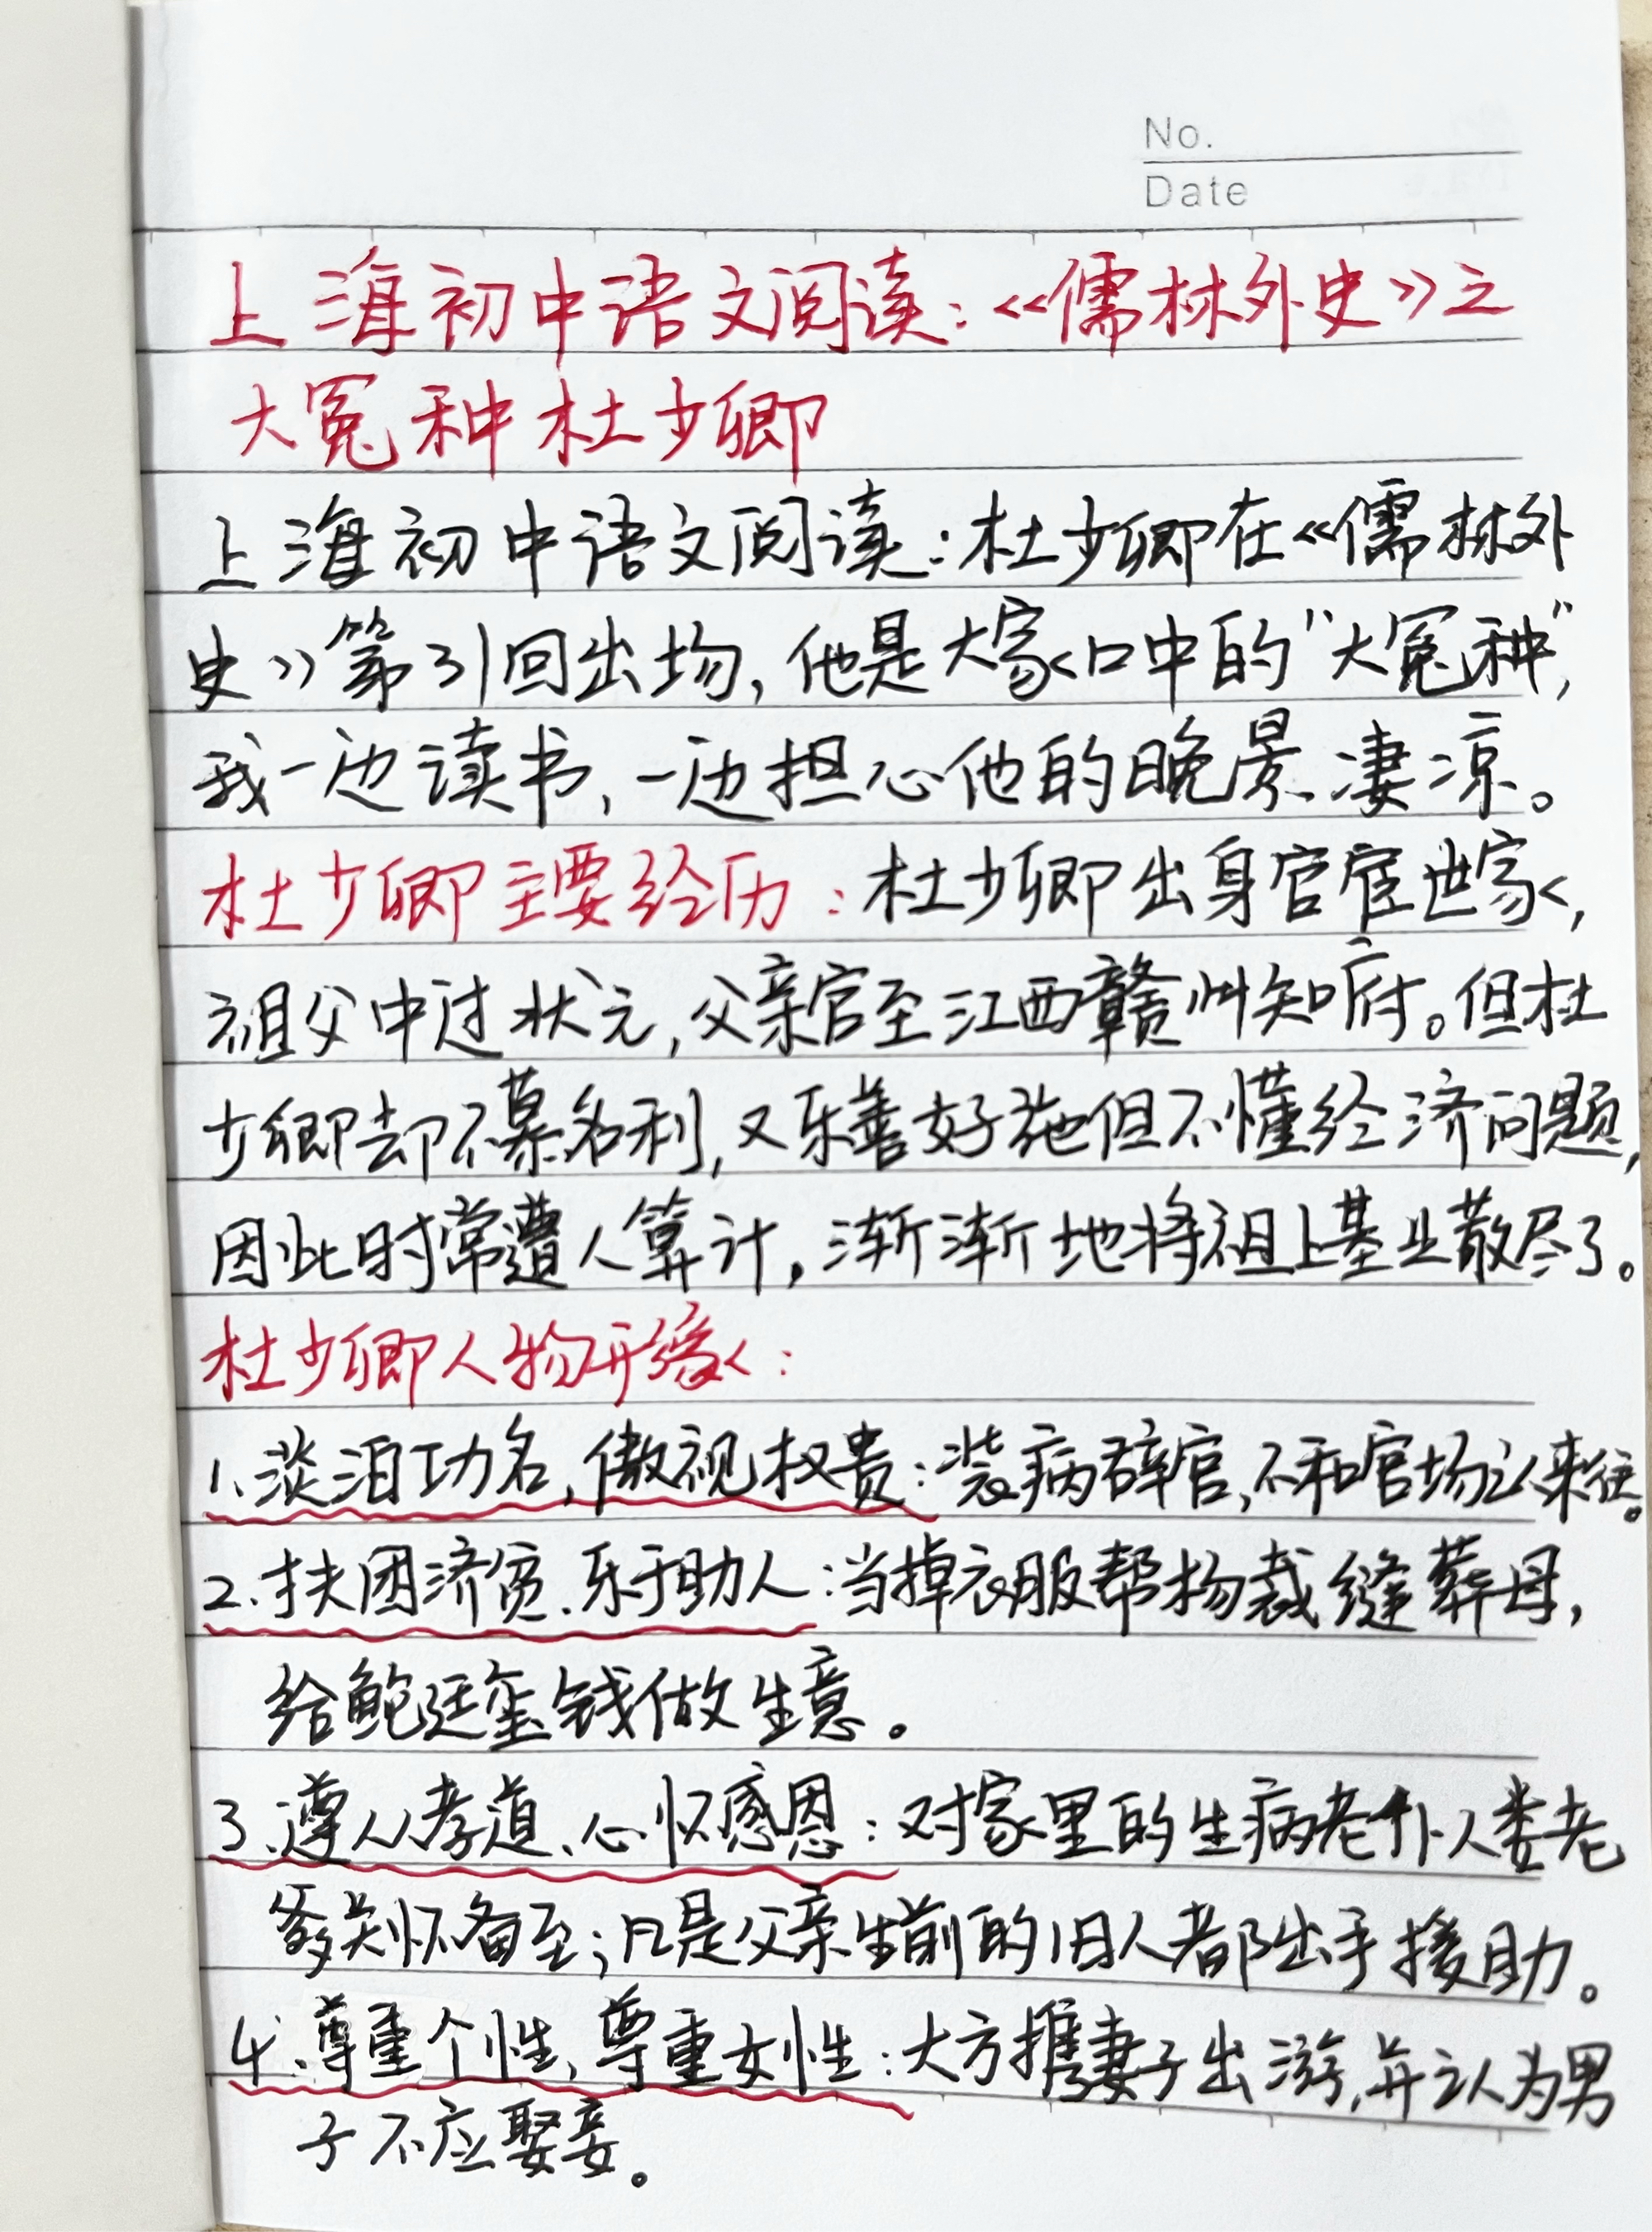 No.
Date
上海初中语文阅读：《儒林外史》之
大冤种杜少卿
上海初中语文阅读：杜少卿在《儒林外
史》第31回出场，他是大家口中的"大冤种"，
我一边读书，一边担心他的晚景凄凉。
杜少卿主要经历：杜少卿出身官宦世家，
祖父中过状元，父亲官至江西赣州知府。但杜
少卿却不慕名利，又乐善好施但不懂经济问题，
因此时常遭人算计，渐渐地将祖上基业散尽了。
杜少卿人物形象：
1、淡泊功名，傲视权贵：装病辞官，不和官场人来往。
2、扶困济贫、乐于助人：当掉衣服帮杨裁缝葬母，
给鲍廷玺钱做生意。
3、遵从孝道、心怀感恩：对家里的生病老仆人娄老
爹关怀备至；凡是父亲生前的旧人都出手援助。
4、尊重个性，尊重女性：大方携妻子出游，并认为男
子不应娶妾。